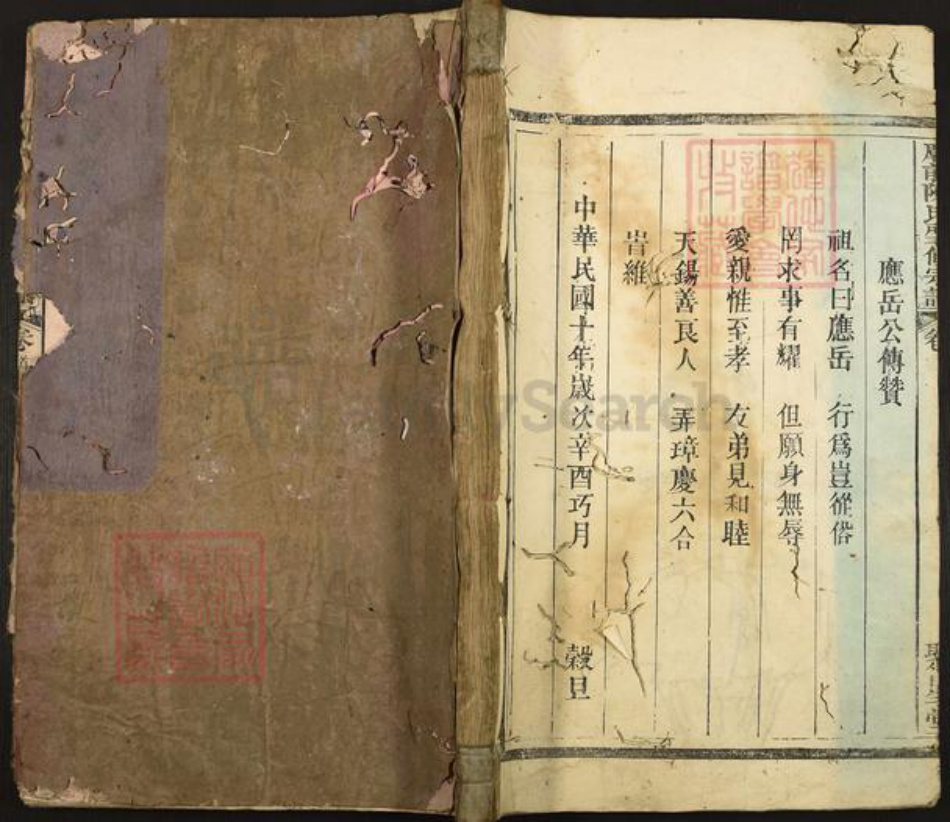 應岳公傳贊
祖名曰應岳 行爲豈從俗
罔求事有耀 但願身無辱
愛親惟至孝 友弟見和睦
天錫善良人 弄璋慶六合
旹維
中華民國十年歲次辛酉巧月 穀旦
FamilySearch